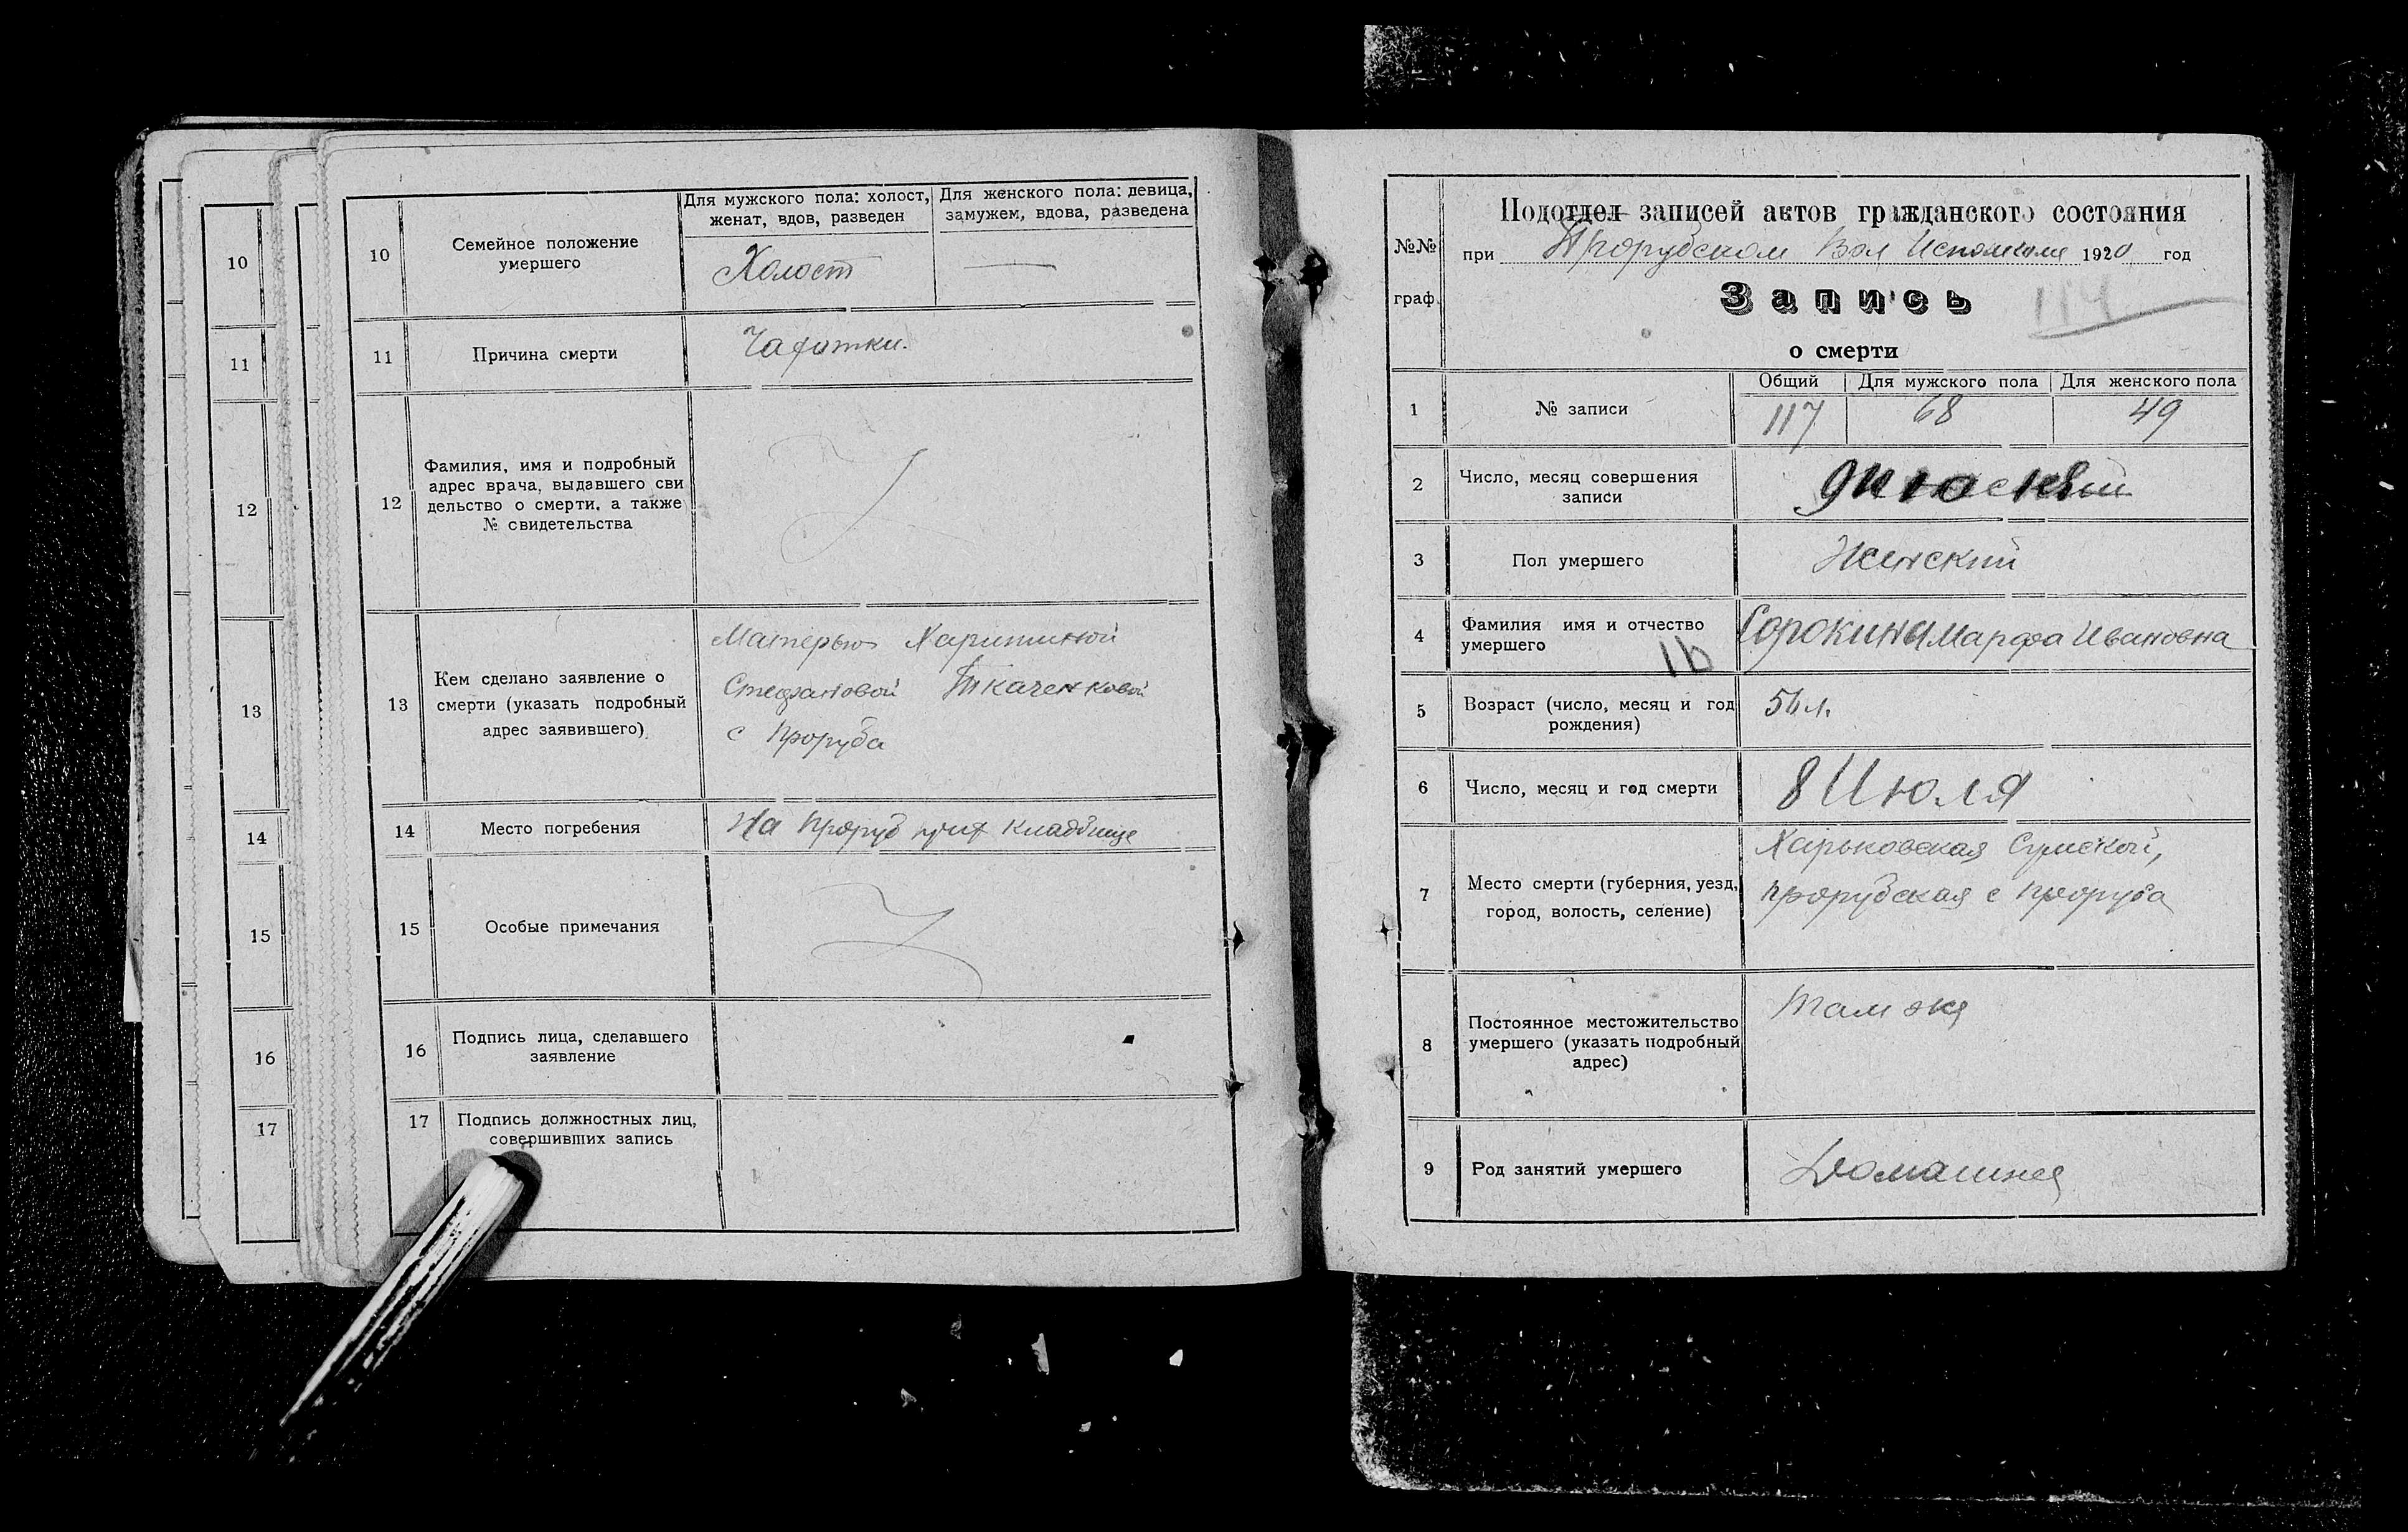 10
11
12
13
14
15
16
17
10
Семейное положение
умершего
Для мужского пола: холост,
женат, вдов, разведен
Для женского пола: девица,
замужем, вдова, разведена
Холост
11
Причина смерти
Чахотки.
12
Фамилия, имя и подробный
адрес врача, выдавшего сви
дельство о смерти, а также
№ свидетельства
13
Кем сделано заявление о
смерти (указать подробный
адрес заявившего)
Матерью Харитиной
Стефановой Ткаченковой
с Проруба
14
Место погребения
На Проруб кладбище
15
Особые примечания
16
Подпись лица, сделавшего
заявление
17
Подпись должностных лиц,
совершивших запись
№№
граф.
Подотдел записей актов гражданского состояния
при Прорубском Вол Исполкоме 1920 год
Запись
114
о смерти
1
№ записи
Общий
Для мужского пола
Для женского пола
117
68
49
2
Число, месяц совершения
записи
3
Пол умершего
Женский
4
Фамилия имя и отчество
умершего
Сорокина Марфа Ивановна
5
Возраст (число, месяц и год
рождения)
6
Число, месяц и год смерти
8 Июля
7
Место смерти (губерния, уезд,
город, волость, селение)
Харьковская Сумской,
Прорубская с Проруба
8
Постоянное местожительство
умершего (указать подробный
адрес)
Там же
9
Род занятий умершего
Домашняя